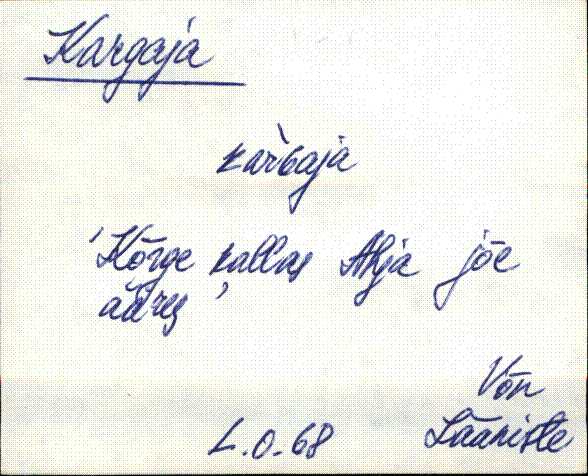 Kargaja
kar̀Gaja
'Kõrge kallas Ahja jõe
ääres'
Võn
Lääniste
L.O.68